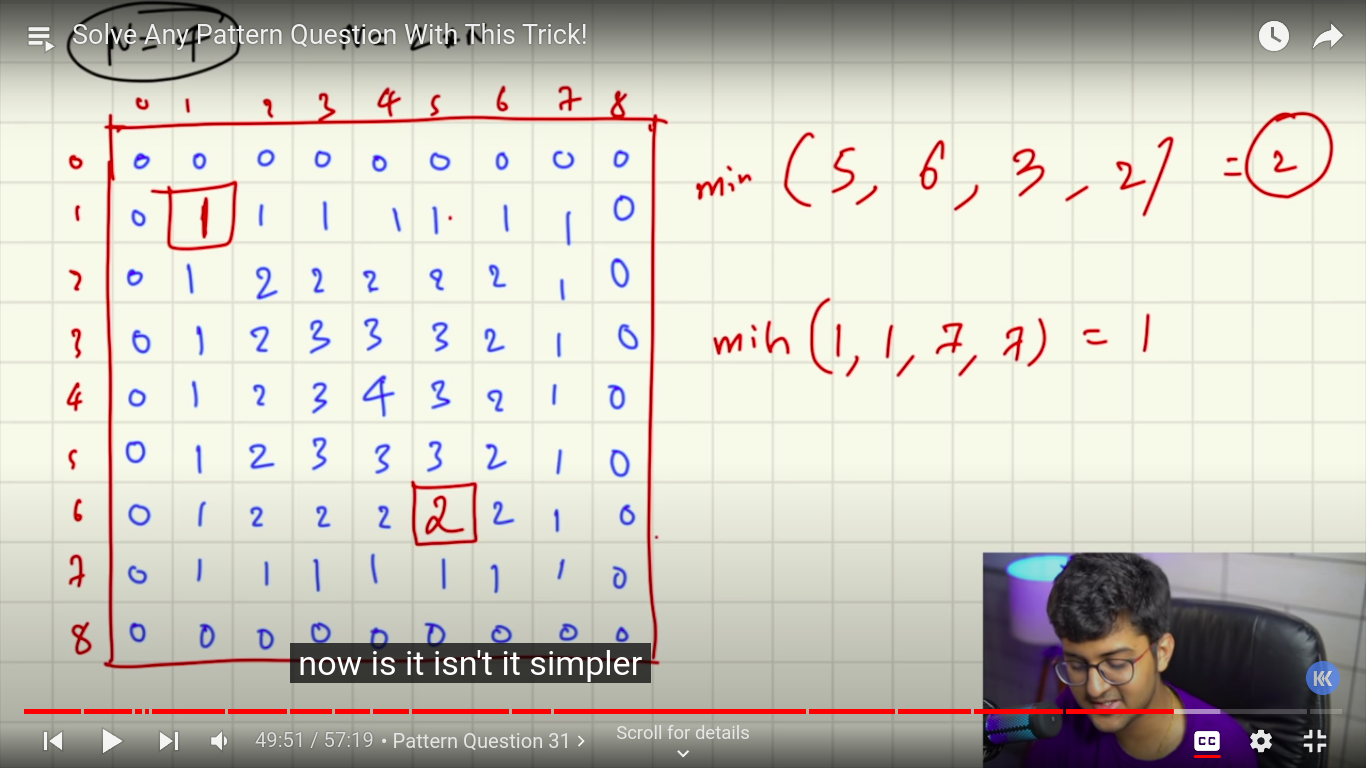 Solve Any Pattern Question With This Trick!
N = 4
0 1 2 3 4 5 6 7 8
0 0 0 0 0 0 0 0 0 0
1 0 1 1 1 1 1 1 1 0
2 0 1 2 2 2 2 2 1 0
3 0 1 2 3 3 3 2 1 0
4 0 1 2 3 4 3 2 1 0
5 0 1 2 3 3 3 2 1 0
6 0 1 2 2 2 2 2 1 0
7 0 1 1 1 1 1 1 1 0
8 0 0 0 0 0 0 0 0 0
min (5, 6, 3, 2) = 2
min (1, 1, 7, 7) = 1
now is it isn't it simpler
49:51 / 57:19 • Pattern Question 31
Scroll for details
CC